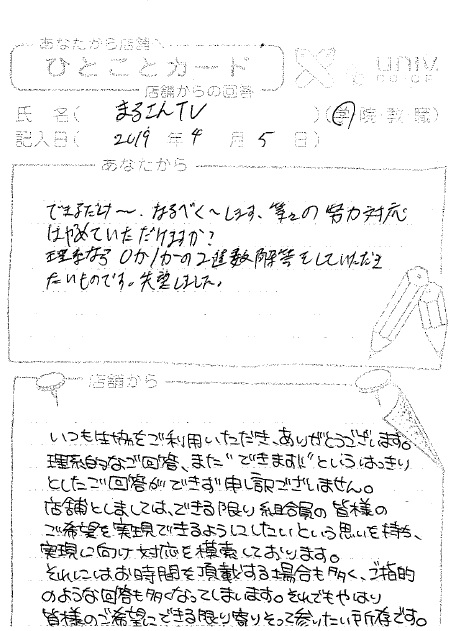 あなたから店舗へ
ひとことカード
店舗からの回答
univ.
CO-OP
氏 名( まるえんTV )(学・院・教・職)
記入日( 2019 年 4 月 5 日)
あなたから
できるだけ〜、なるべく〜します、等々の努力対応
はやめていただけますか?
理系なら0か1かの2進数解答をしていただき
たいものです。失望しました。
店舗から
いつも生協をご利用いただき、ありがとうございます。
理系的なご回答、また"できます!!"というはっきり
としたご回答ができず申し訳ございません。
店舗としましては、できる限り組合員の皆様の
ご希望を実現できるようにしたいという思いを持ち、
実現に向け対応を模索しております。
それにはお時間を頂戴する場合も多く、ご指摘
のような回答も多くなってしまいます。それでもやはり
皆様のご希望にできる限り寄りそって参りたい所存です。